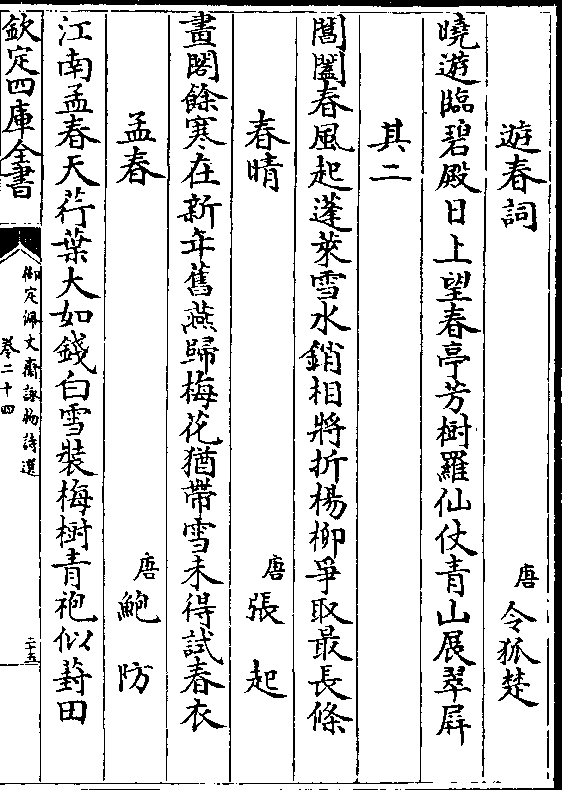 遊春詞 唐 令狐楚
曉遊臨碧殿日上望春亭芳樹羅仙仗青山展翠屏
其二
閶闔春風起蓬萊雪水銷相將折楊柳爭取最長條
春晴 唐 張起
畫閣餘寒在新年舊燕歸梅花猶帶雪未得試春衣
孟春 唐 鮑防
江南孟春天荇葉大如錢白雪裝梅樹青袍似葑田
欽定四庫全書
御定佩文齋詠物詩選
卷二十四
二十五